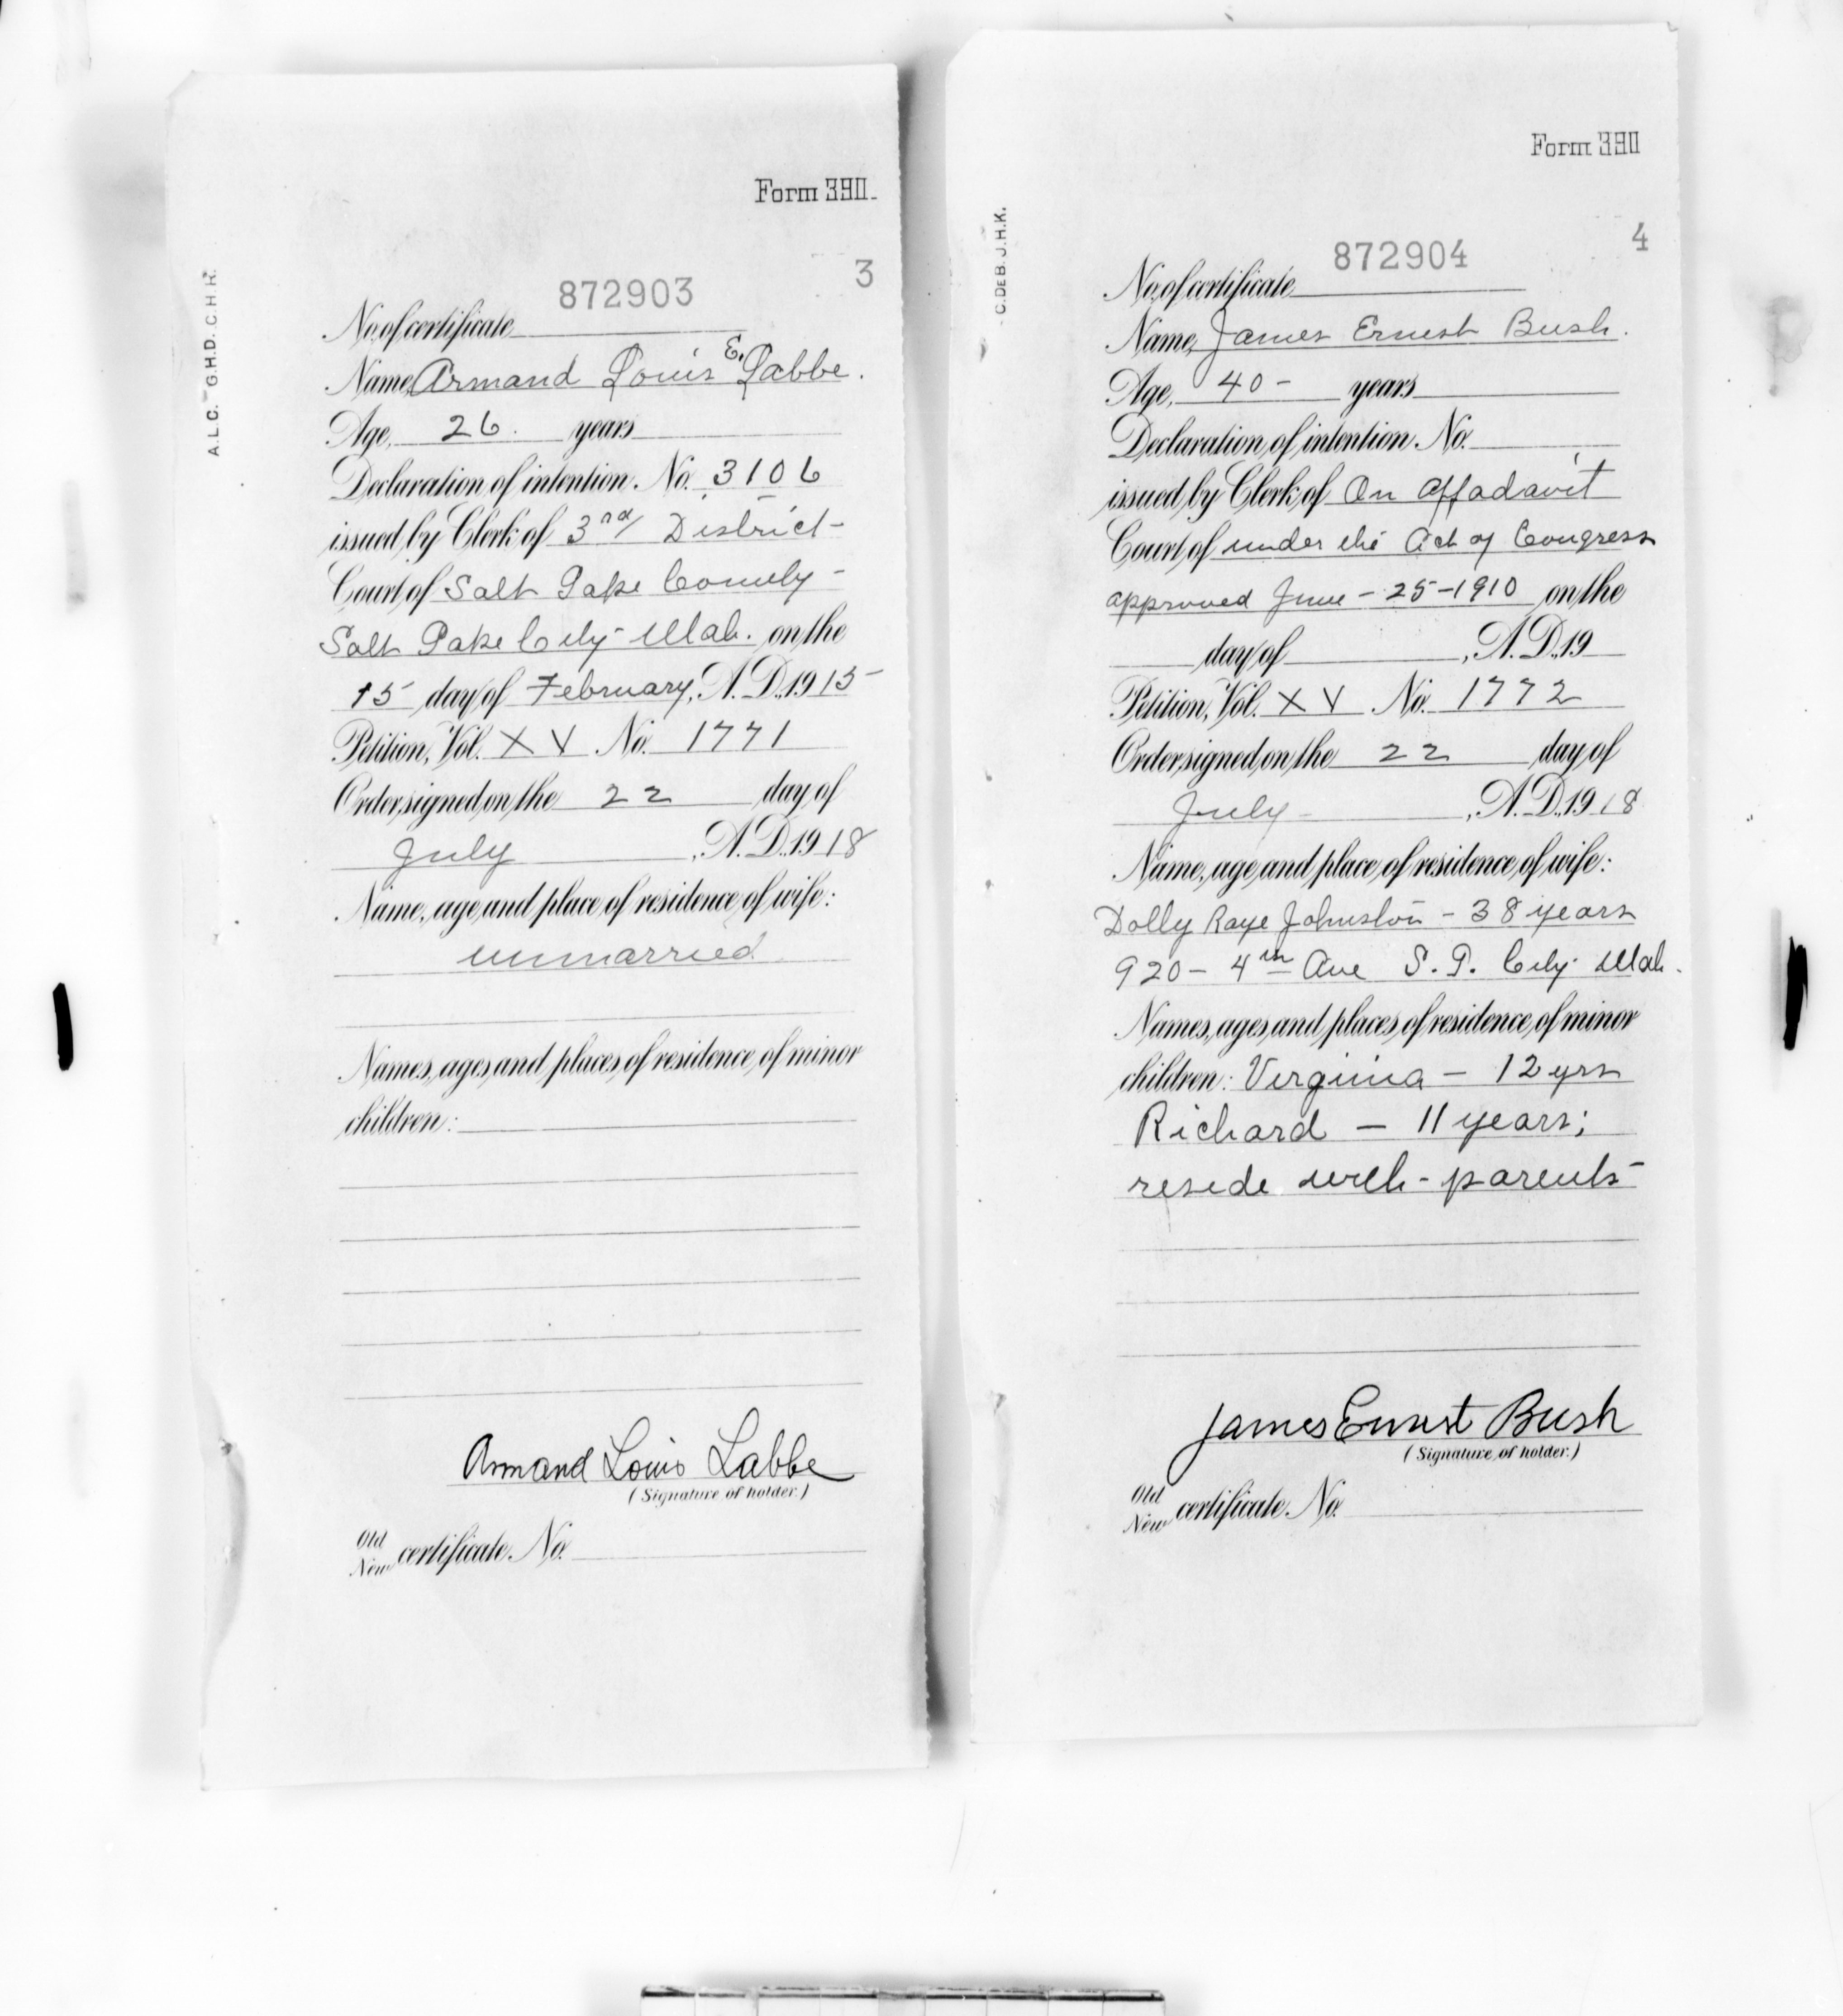 Form 390.
3
872903
A.L.C. G.H.D. C.H.R.
No. of certificate
Name, Armand Louis E. Labbe.
Age, 26. years
Declaration of intention No. 3106
issued by Clerk of 3rd District
Court of Salt Lake County
Salt Lake City Utah. on the
15 day of February, A.D. 1915
Petition, Vol. XV No. 1771
Order signed on the 22 day of
July, A.D. 1918
Name, age and place of residence of wife:
unmarried
Names, ages and places of residence of minor
children:
Armand Louis Labbe
(Signature of holder.)
Old
New certificate No.
Form 390
4
872904
C. DEB. J.H.K.
No. of certificate
Name, James Ernest Bush.
Age, 40 - years
Declaration of intention No.
issued by Clerk of On Affadavit
Court of under the Act of Congress
approved June - 25 - 1910 on the
day of , A.D. 19
Petition, Vol. XV No. 1772
Order signed on the 22 day of
July , A.D. 1918
Name, age and place of residence of wife:
Dolly Raye Johnston - 38 years
920 - 4th Ave S. L. City Utah.
Names, ages and places of residence of minor
children: Virginia - 12 yrs
Richard - 11 years;
reside with - parents
James Ernest Bush
(Signature of holder.)
Old
New certificate No.